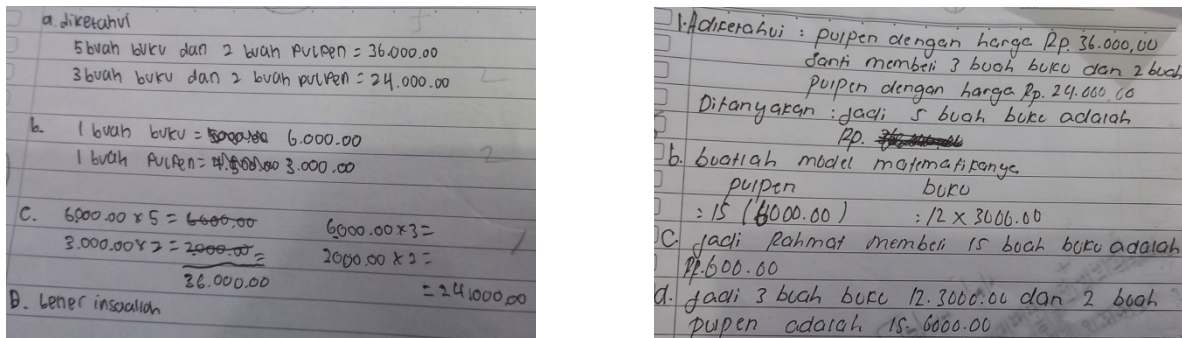 a. diketahui
5 buah buku dan 2 buah pulpen = 36.000.00
3 buah buku dan 2 buah pulpen = 24.000.00
b. 1 buah buku = 6.000.00
1 buah pulpen = 3.000.00
C. 6000.00 x 5 = 6000.00 6000.00 x 3 =
3.000.00 x 2 = 2000.00 = 2000.00 x 2 =
36.000.00 = 24.000.00
D. bener insaallah
1. A diketahui : pulpen dengan harga Rp. 36.000,00
Santi membeli 3 buah buku dan 2 buah
pulpen dengan harga Rp. 24.000.00
Ditanyakan : jadi 5 buah buku adalah
Rp.
b. buatlah model matematikanya
pulpen buku
: 15 (6000.00) : 12 x 3000.00
C. jadi Rahmat membeli 15 buah buku adalah
Rp.600.00
d. jadi 3 buah buku 12.3000.00 dan 2 buah
pulpen adalah 15. 6000.00